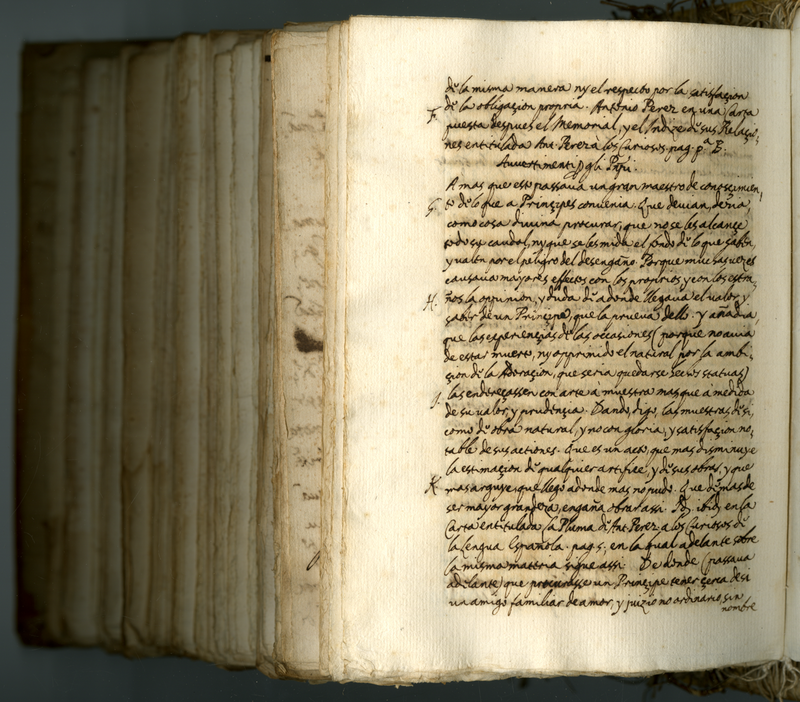 de la misma manera ny el respecto por la satisfaçion
de la obligaçion propria. Antonio Perez en una Carta
F. puesta despues el Memorial, y el Indize de sus Relaçio-
nes entitulada Ant. Perez à los Curiosos. pag. pª B.
Auvertimenti gli
A mas que esto passaua un gran maestro de conosçimien-
G. to de lo que a Prinçipes conuenia. Que deuian, deuia,
como cosa diuina procurar, que no se les alcanse
todo su caudal, ny que se les mida el fondo de lo que saben,
y ualen por el peligro del desengaño. Porque muchas uezes
causaua mayores effectos con los proprios, y con los estra-
H. ños la oppinion, y duda de adonde llegaua el valor, y
saber de un Prinçipe, que la prueua dello. y añadia,
que las esperiençias de las occasiones (porque no auia
de estar muerto, ny opprimido el natural por la ambi-
çion de la Adoraçion, que seria quedarse hechos statuas)
J. las endereçassen con arte à muestra mas que à medida
de su valor, y prudençia. Dando, digo, las muestras de si,
como de obra natural, y no con gloria, y satisfaçion no-
table de sus actiones. Que es un acto, que mas disminuye
la estimaçion de qualquier artifiçe, y de sus obras, y que
K mas arguye, que llegò adonde mas no pudo. Que demas de
ser mayor grandeza, engaña obrar assi. ibid. en la
Carta entitulada la Pluma de Ant. Perez a los Curiosos de
la lengua Española. pag. 5. en la qual adelante sobre
la misma materia sigue assi. De donde (passaua
adelante) que procurasse un Prinçipe tener çerca de si
un amigo familiar de amor, y juizio no ordinario, sin
nombre